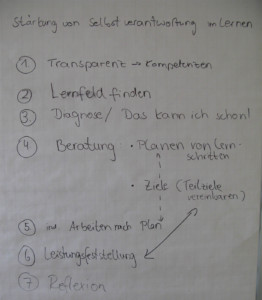 Stärkung von Selbstverantwortung im Lernen
① Transparent → Kompetenzen
② Lernfeld finden
③ Diagnose / Das kann ich schon!
④ Beratung • Planen von Lern-
schritten
• Ziele (Teilziele
vereinbaren)
⑤ ins Arbeiten nach Plan
⑥ Leistungsfeststellung
⑦ Reflexion